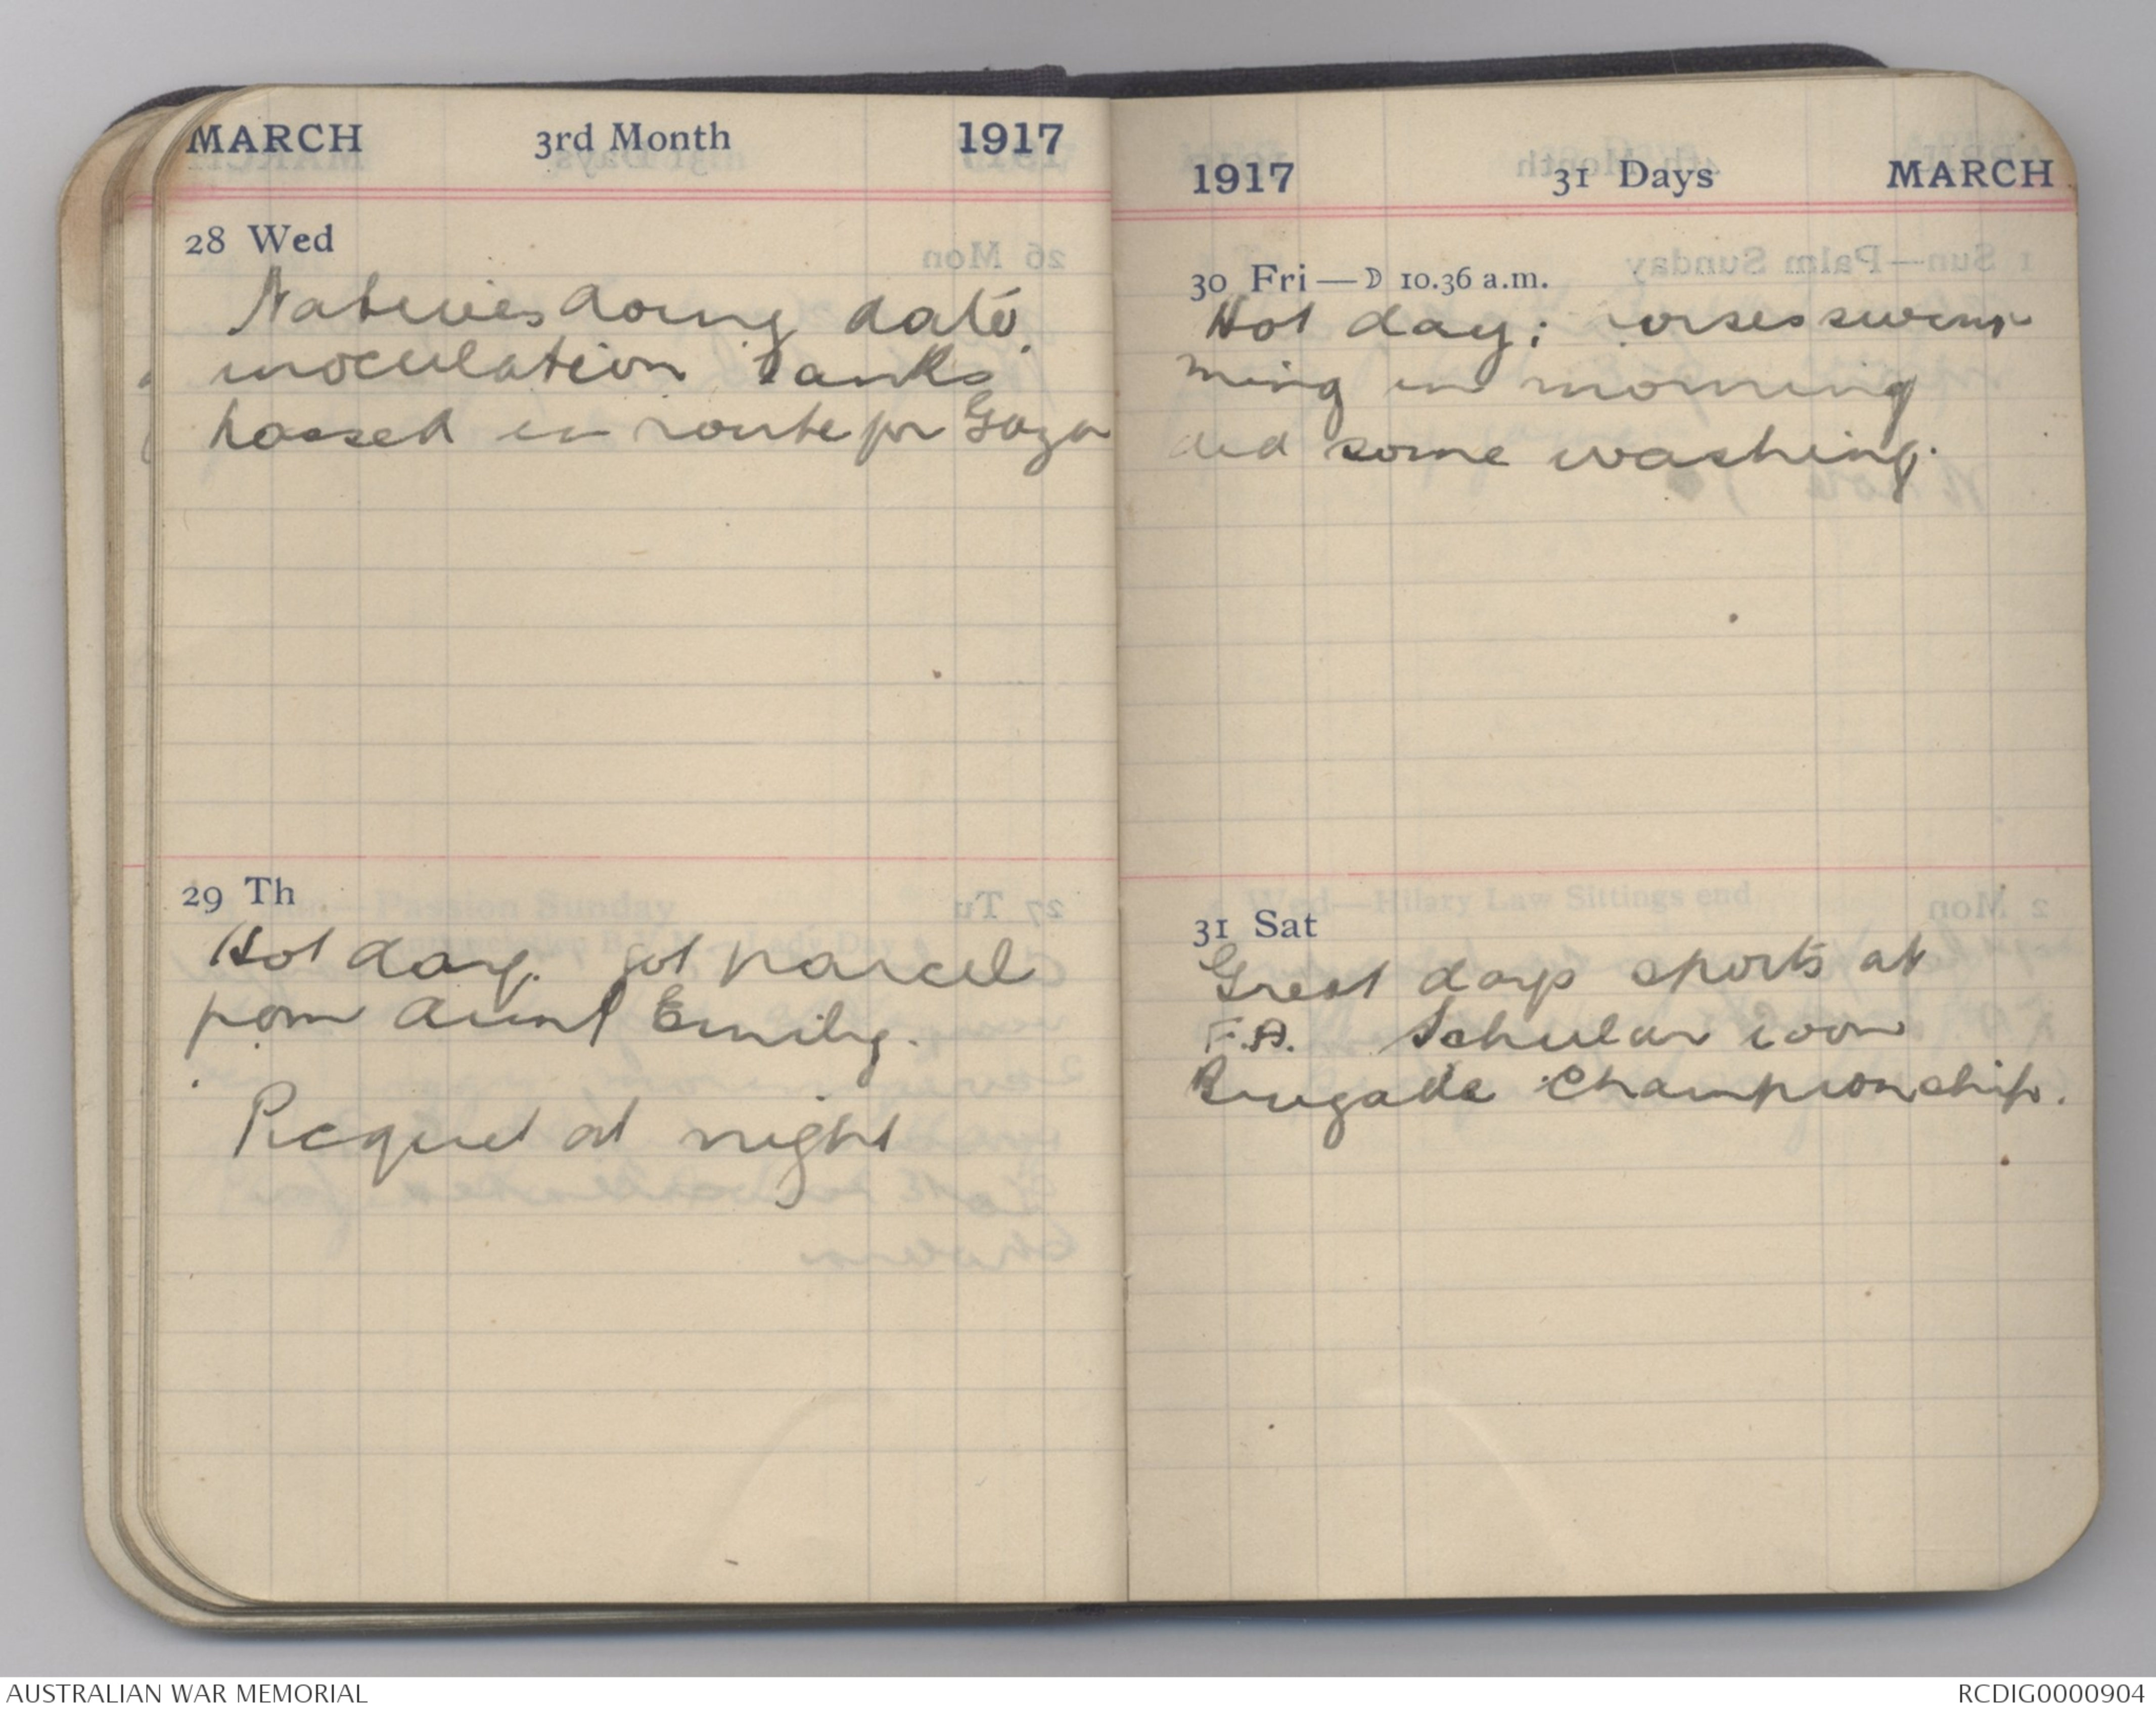 MARCH 3rd Month 1917
28 Wed
Natives doing dato.
inoculation Tanks
passed en route for Gaza
29 Th
Hot day. got parcel
from Aunt Emily.
Picquet at night
1917 31 Days MARCH
30 Fri—☽ 10.36 a.m.
Hot day; horses swim
ming in morning
did some washing.
31 Sat
Great days sports at
F.A. Schular won
Brigade Championship.
AUSTRALIAN WAR MEMORIAL
RCDIG0000904